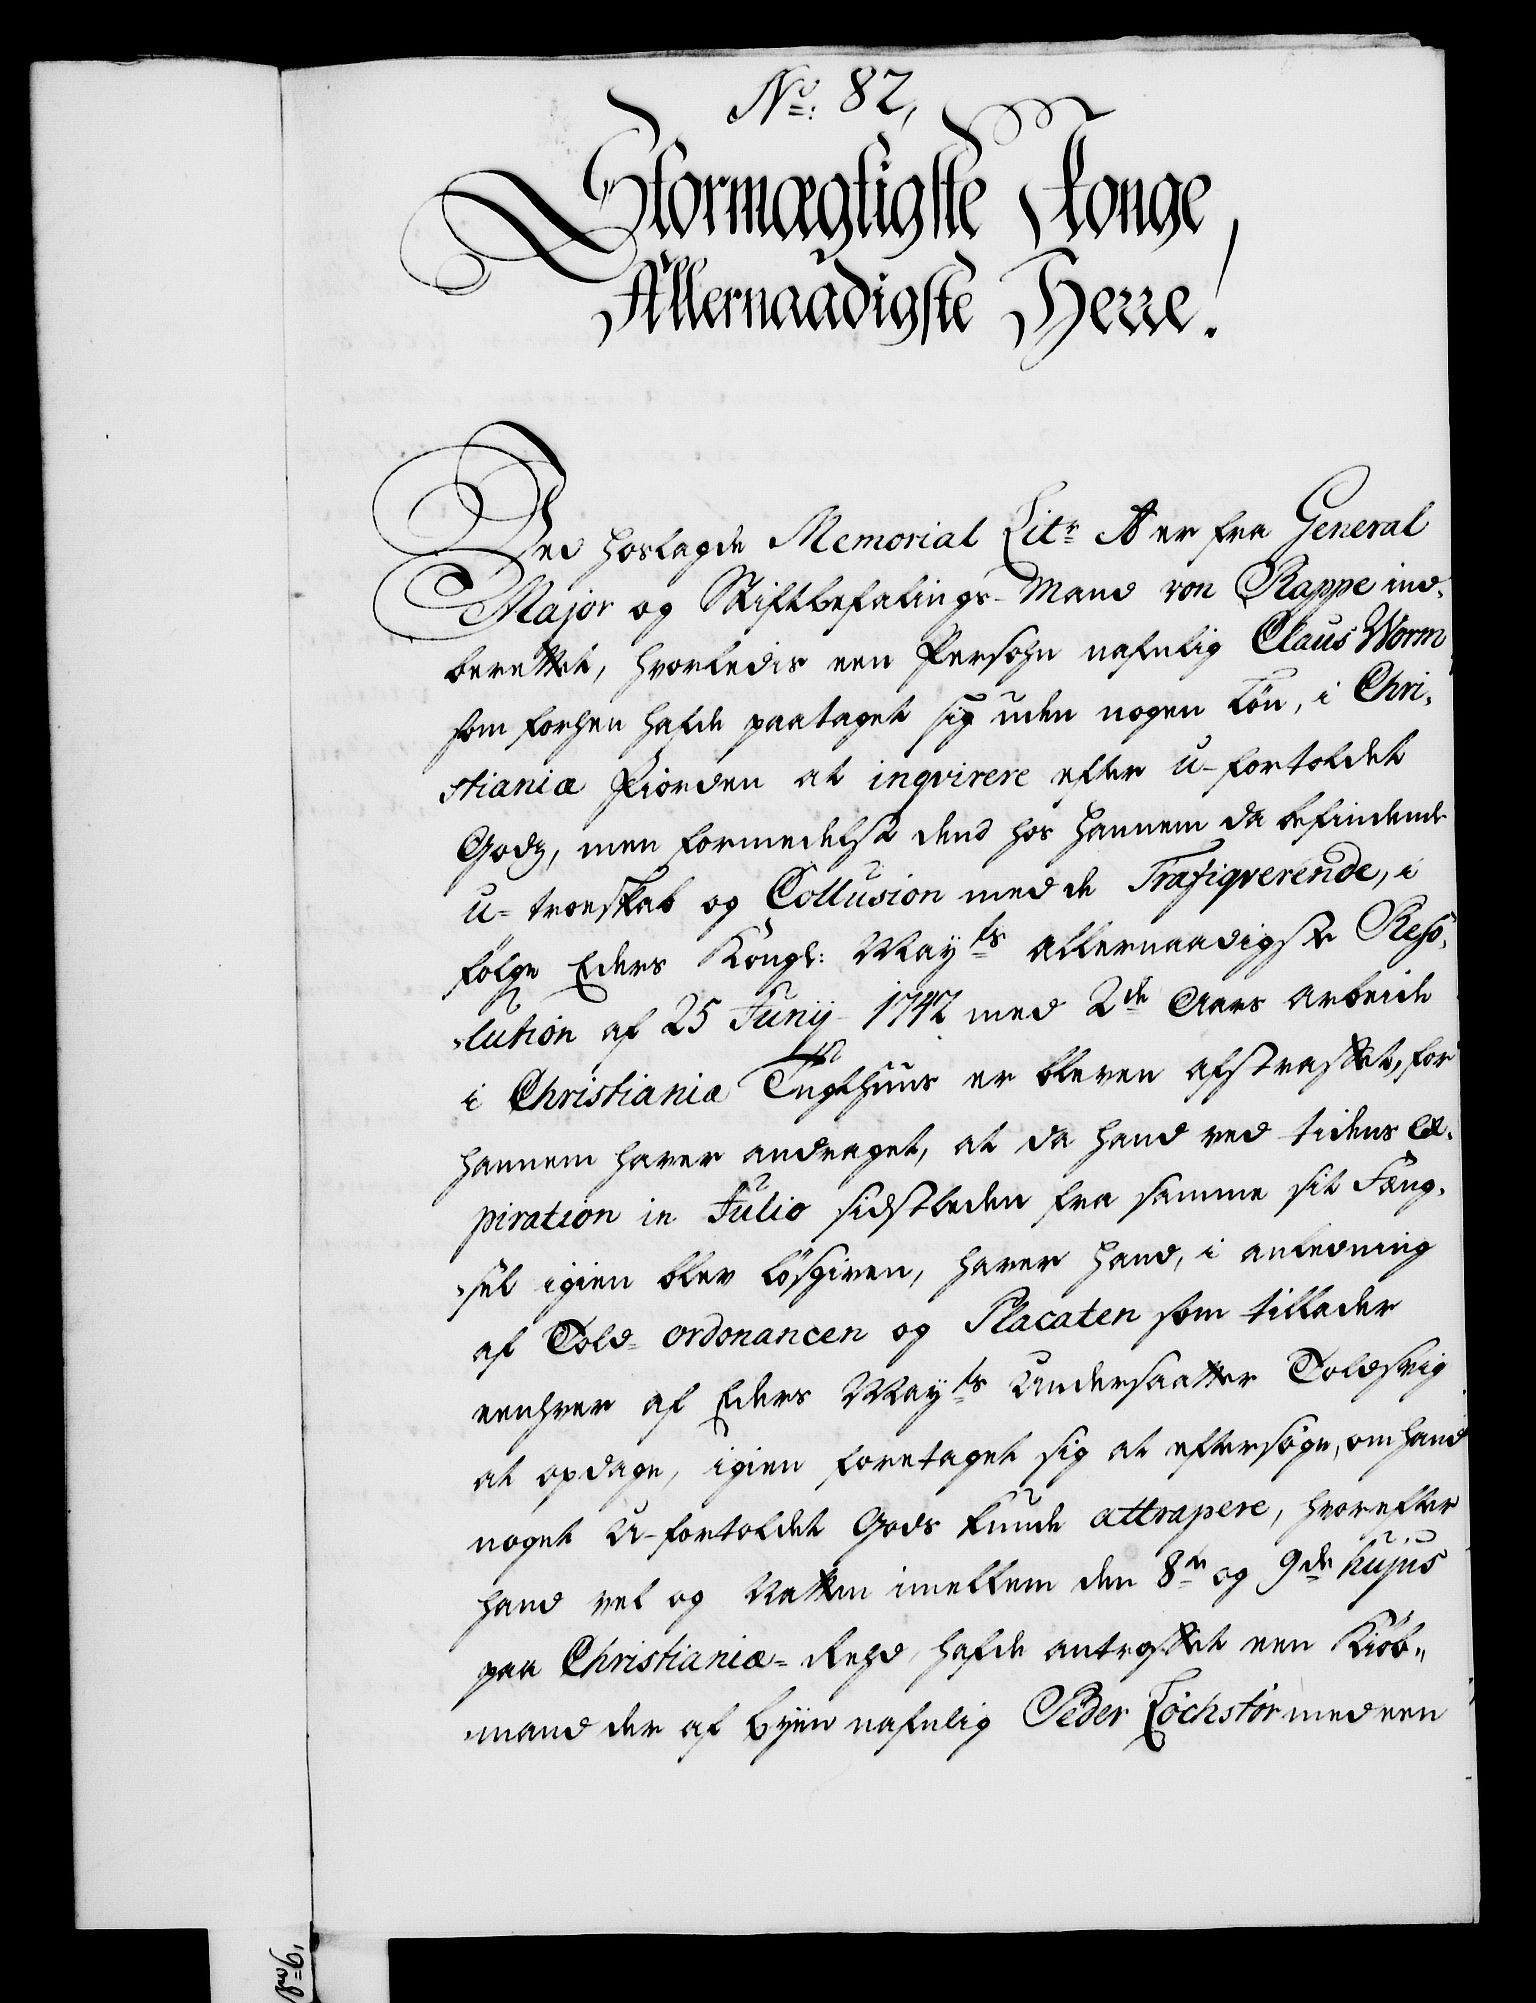 No: 82,
Stormægtigste Konge,
Allernaadigste Herre!
Ved hoslagde Memorial Litr A er fra General
Major og Stiftbefalings-Mand von Rappe ind-
berettet, hvorledis een Persohn nafnlig Claus Worm
som forhen hafde paataget sig uden nogen Løn, i Chri-
stiania Fiorden at inqvirere efter u-fortoldet
Gods, men formedelst dend hos hannem da befindende
u-troeskab og Collusion med de Trafiqverende, i
følge Eders Kongl: Mayts allernaadigste Reso-
lution af 25 Junij 1742 med 2de Aars arbeide
i Christiania Tugthuus er bleven afstraffet, for
hannem haver andraget, at da hand ved tidens Ex-
piration in Julio sidstleden fra samme sit Fæng-
sel igien blev løsgiven, haver hand, i anledning
af Told-ordonancen og Placaten som tillader
eenhver af Eders Mayts Undersaatter Toldsvig
at opdage, igien foretaget sig at eftersøge, om hand
noget U-fortoldet Gods kunde attrapere, hvorefter
hand vel og Natten imellem den 8de og 9de hujus
paa Christiania-Rehd hafde antroffet een Kiøb-
mand der af byen nafnlig Peder Lochstør med een